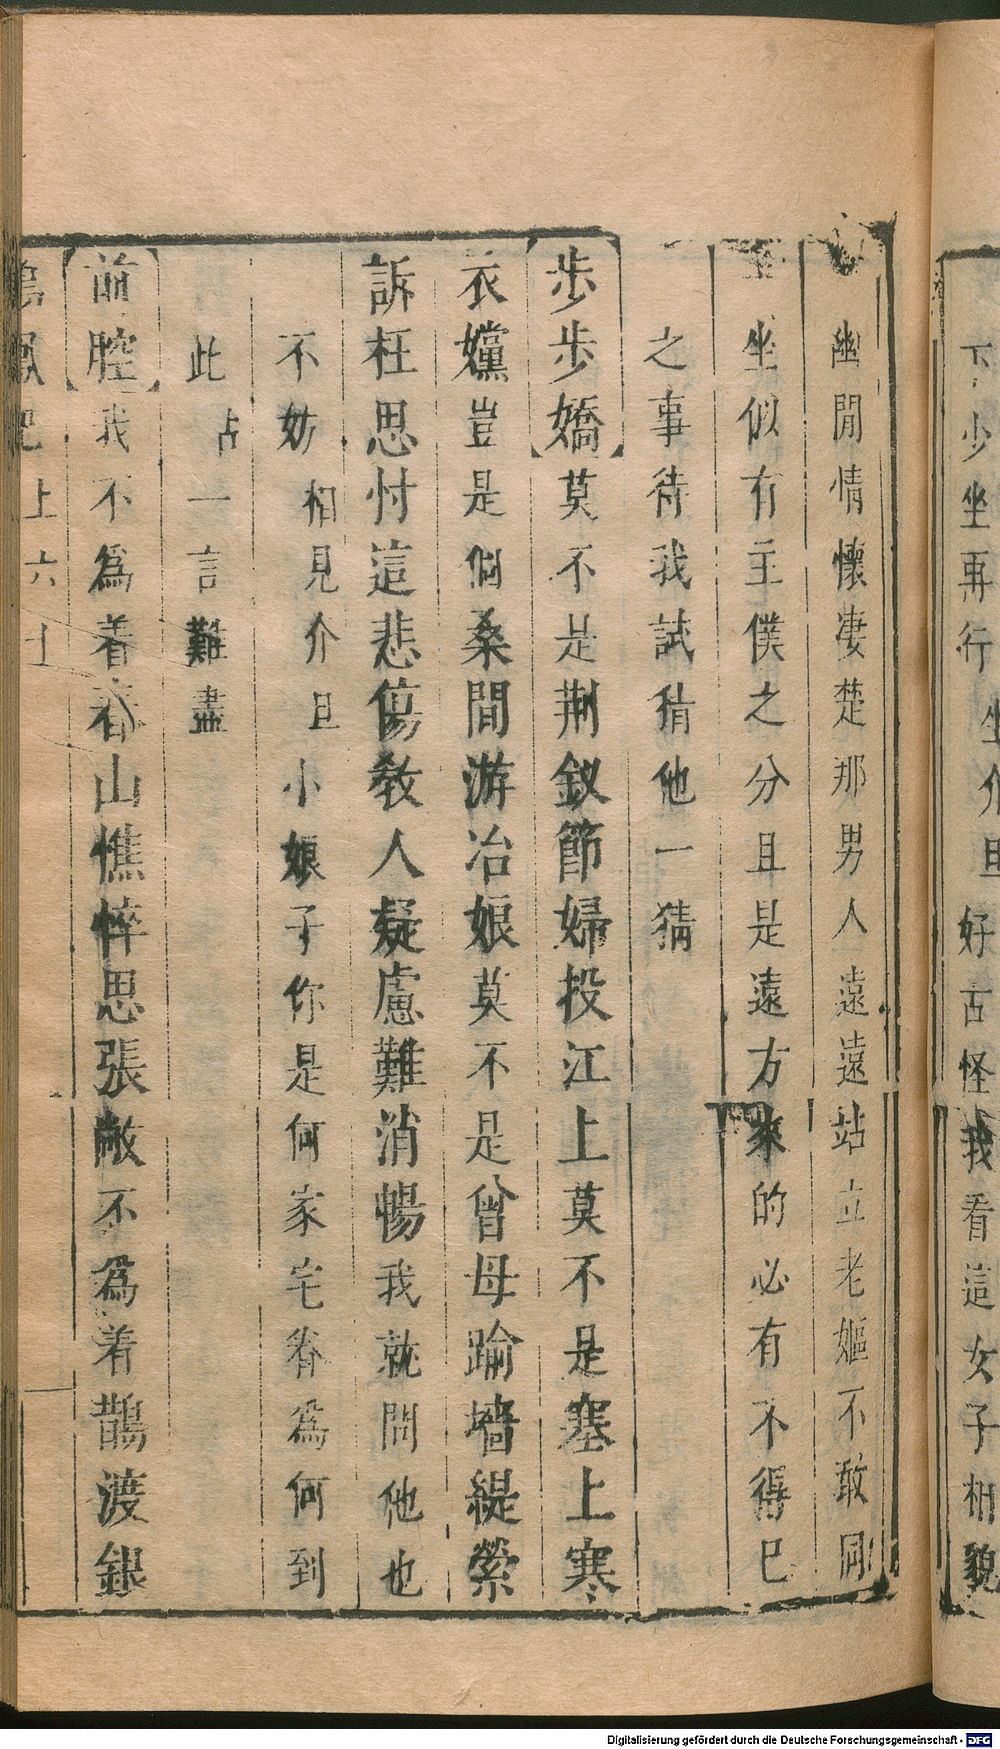 下少坐再行坐介旦好古怪我看這女子相貌
幽閒情懷凄楚那男人遠遠站立老嫗不敢同
坐坐似有主僕之分且是遠方來的必有不得巳
之事待我試猜他一猜
【步步嬌】莫不是荆釵節婦投江上莫不是塞上寒
衣孀豈是個桑間游冶娘莫不是曾母踰墻緹縈
訴枉思忖這悲傷教人疑慮難消暢我就問他也
不妨相見介旦小娘子你是何家宅眷為何到
此占一言難盡
【前腔】我不為着春山憔悴思張敞不為着鵲渡銀
上六十
Digitalisierung gefördert durch die Deutsche Forschungsgemeinschaft - DFG